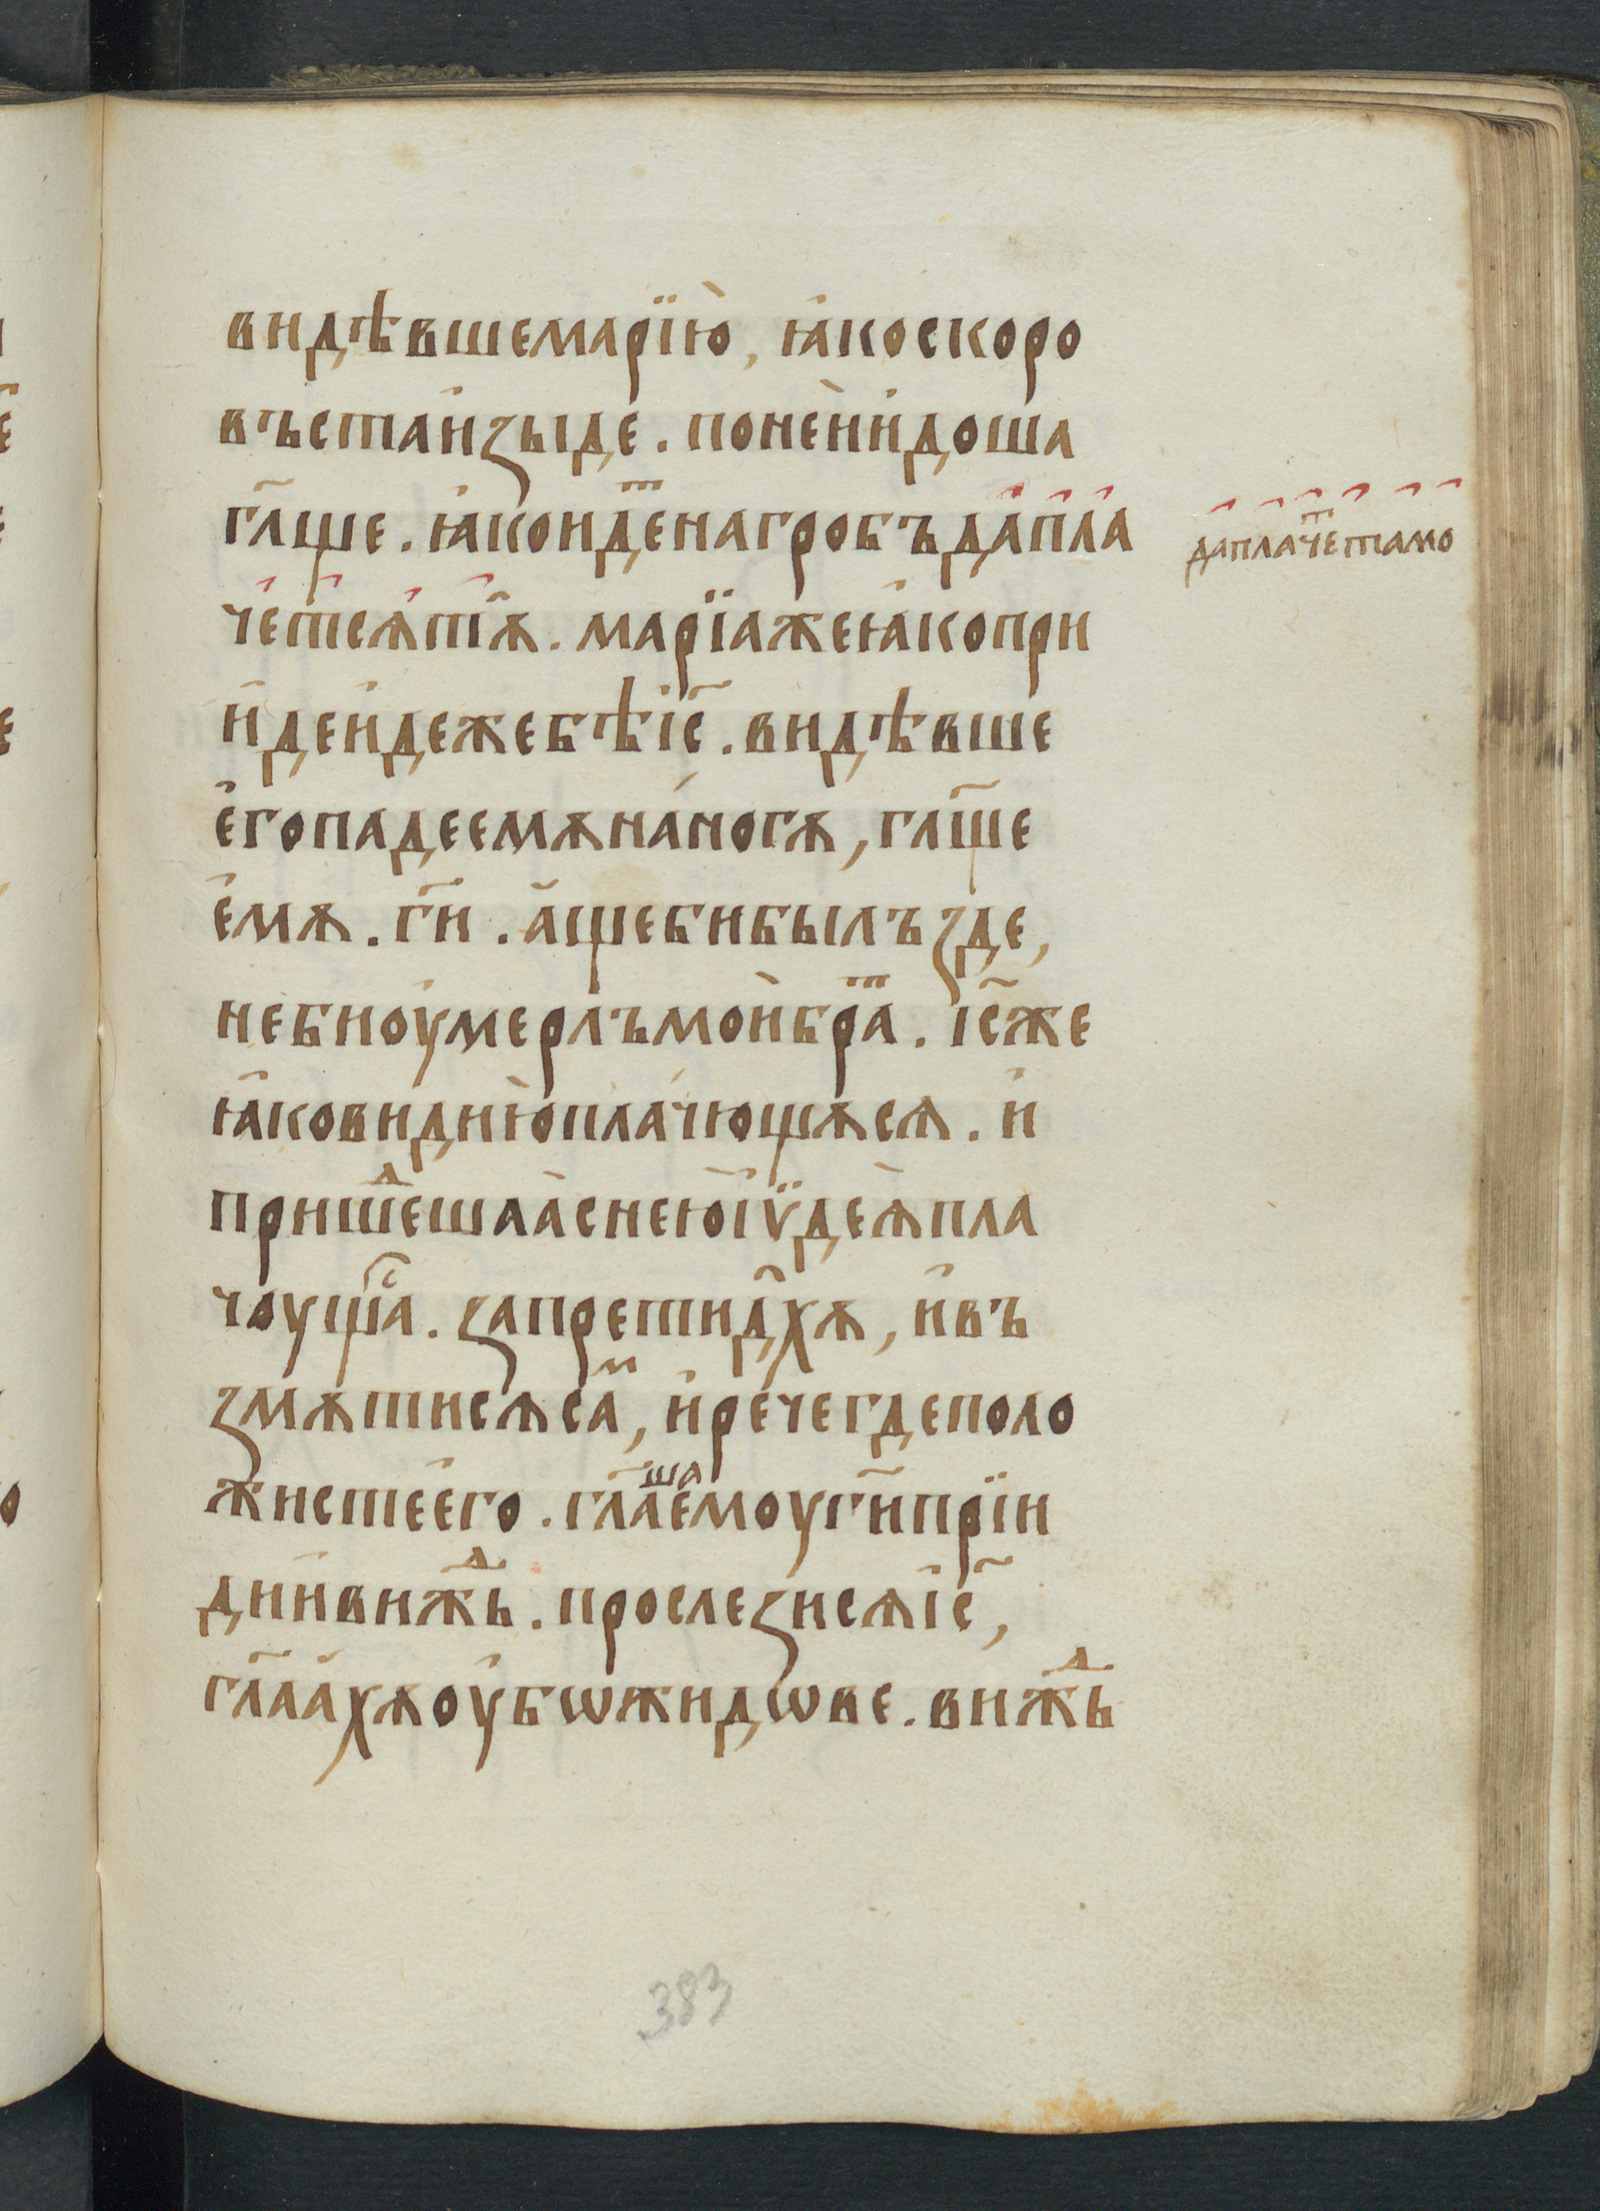 видѣвшемарїю̀, ꙗ҆коскоро
въста̀и҆зыде. понеи҆и҆доша
гл҃ще. ꙗ҆коидⷮенагробъдапла
четсѧтꙋ̑. марїажеꙗ҆копри
и҆деи҆дежебѣіс҃. видѣвше
е҆гопадеемѫна́ногѫ, гл҃ще
е҆мѫ. гн҃и. а҆щебибылъзде,
небиоу҆мерлъмои҆брⷮа. іс҃же
ꙗ҆ковидию̀пла́чющѫсѧ. и҆
пришⷣешаа҆снею̀і҆ѵ̈деѧ̀пла
чоущⷭа. запретидх҃ѫ, и҆въ
змѫтисѧсаⷨ, и҆ре́чегдеполо
жистее҆го. гл҃аша
е҆моугн҃ипрїи
дии҆вижⷣь. прослезисѧіс҃,
гл҃аа҆хѫоу҆бѡжидѡве. вижⷣь
даплачеⷮтамо
383